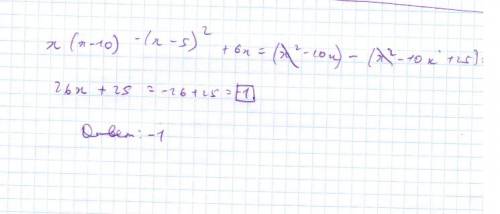 x(x-10) -(x-5)² + 6x = (x²-10x) - (x²-10x+25)=
26x + 25 = -26+25 = -1
Ответ: -1